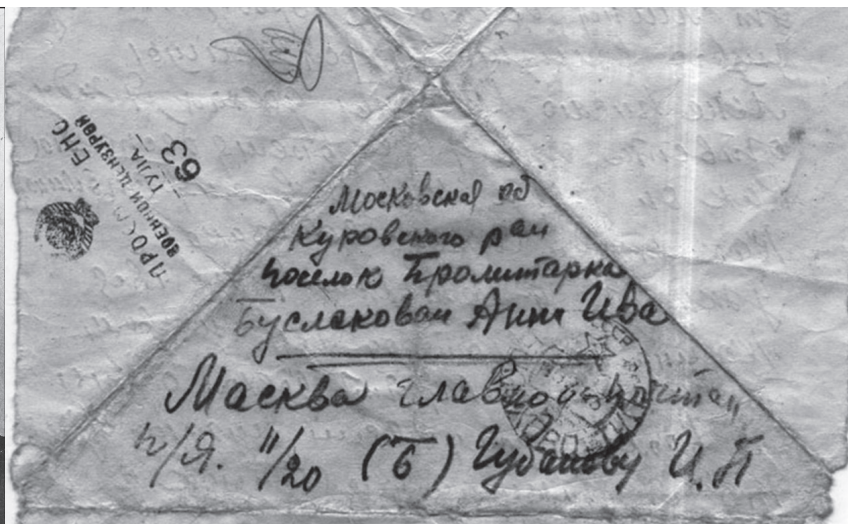 ПРОСМОТРЕНО
ВОЕННОЙ ЦЕНЗУРОЙ
ТУЛА
63
Московская об
Куровского рай
посёлок Пролитарка
Буслаковай Анне Ива
Масква главнои почтам
п/я. 11/20 (Б) Губанову И.П